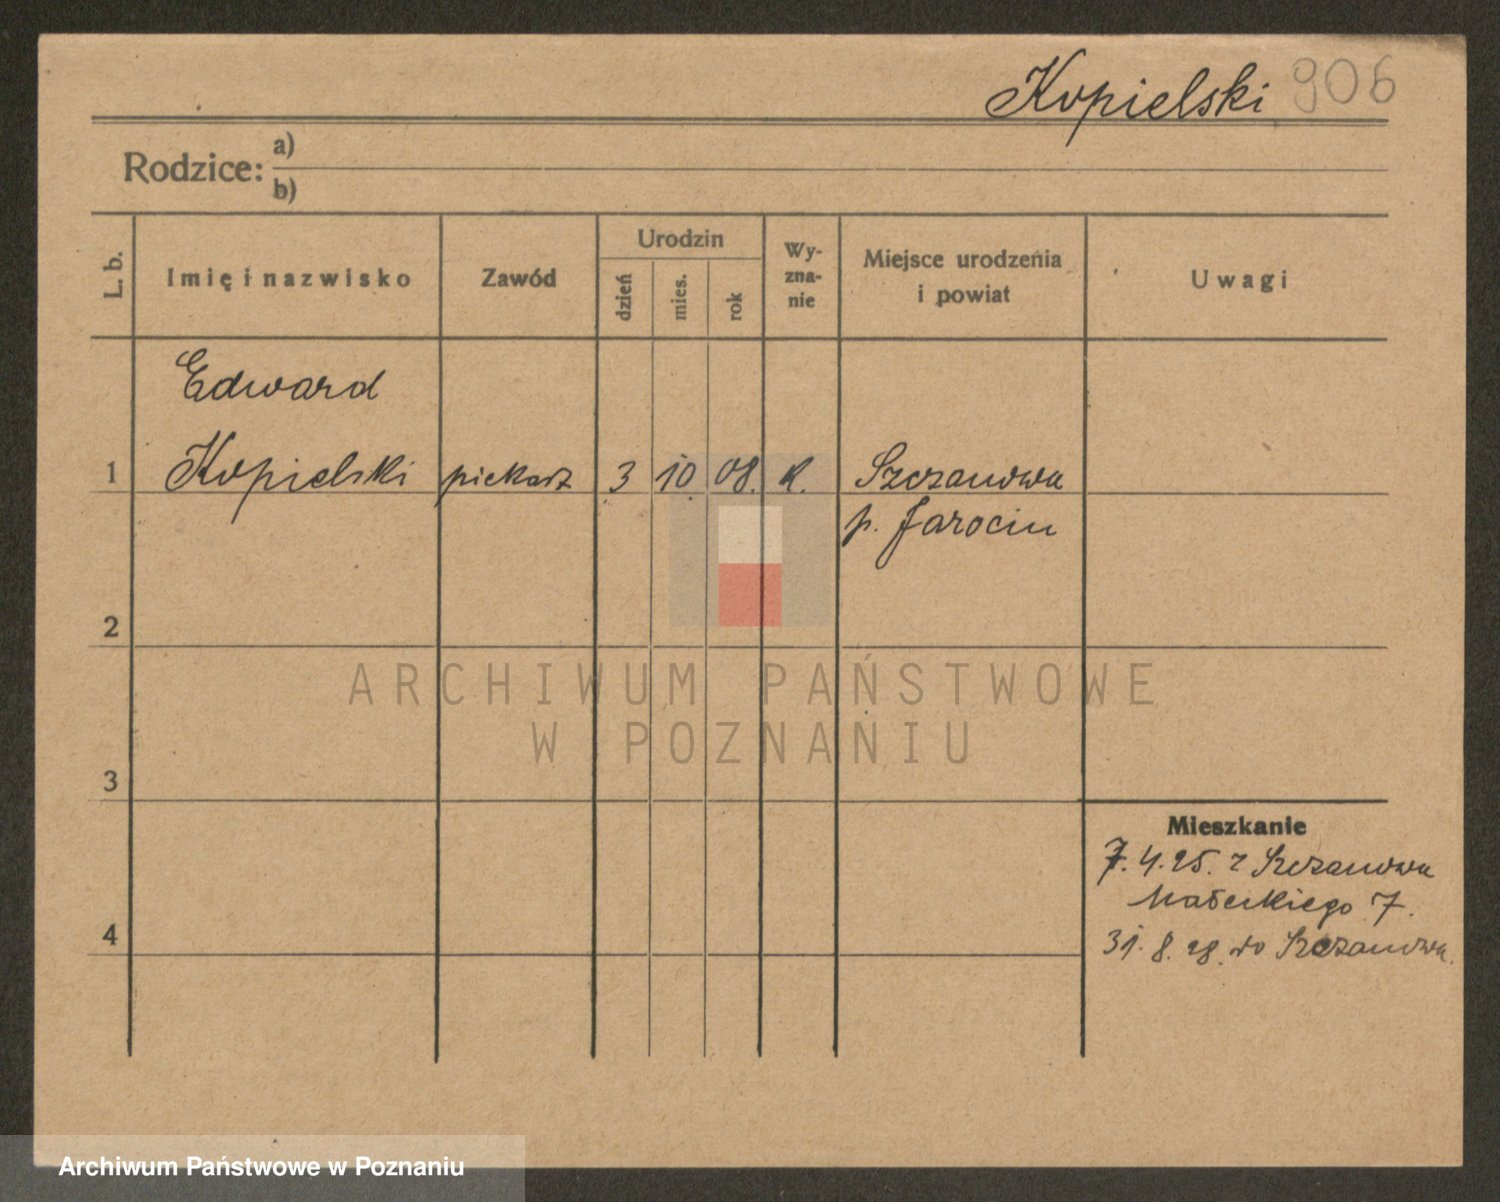 Kopielski 906
Rodzice: a)
b)
L. b. Imię i nazwisko Zawód Urodzin dzień mies. rok Wyznanie Miejsce urodzenia i powiat Uwagi
Edward
1 Kopielski piekarz 3 10 08. k. Szczanowa
p. Jarocin
2
ARCHIWUM PAŃSTWOWE
W POZNANIU
3
Mieszkanie
7. 4. 25. z Szczanowa
Małeckiego 7.
4
31. 8. 28. do Szczanowa.
Archiwum Państwowe w Poznaniu